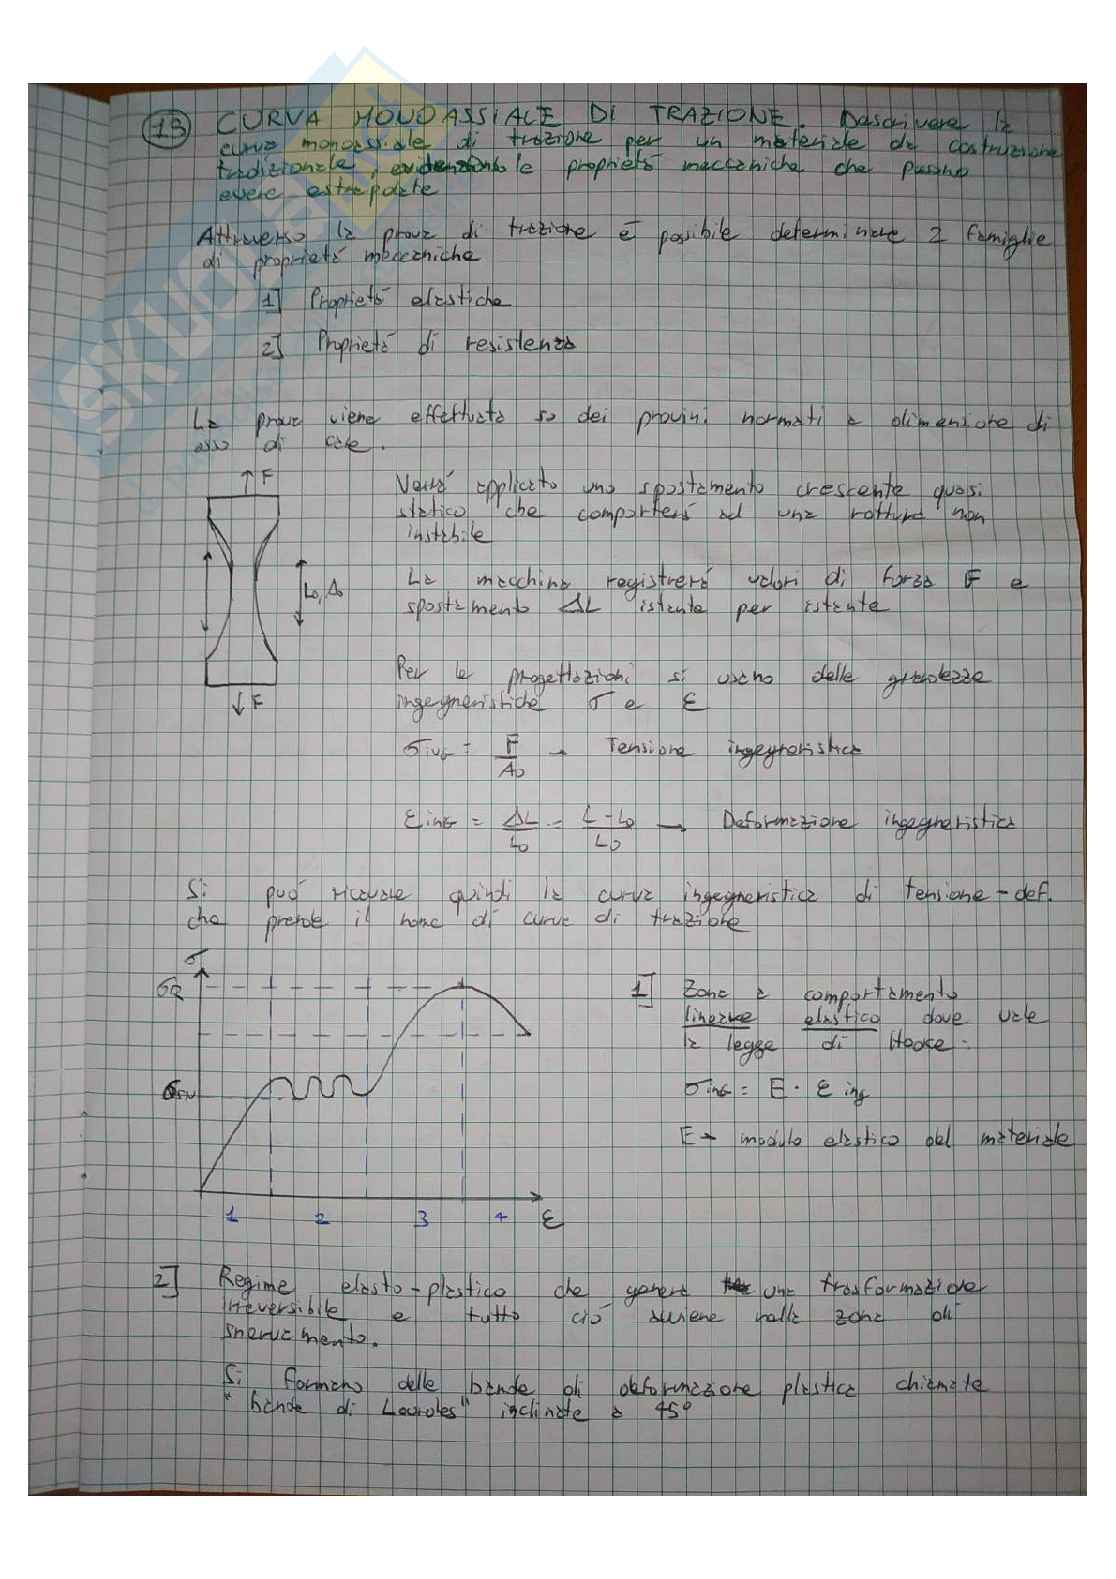 13 CURVA MONOASSIALE DI TRAZIONE. Descrivere la
curva monoassiale di trazione per un materiale da costruzione
tradizionale, evidenziando le proprietà meccaniche che possono
essere estrapolate
Attraverso la prova di trazione è possibile determinare 2 famiglie
di proprietà meccaniche
1] Proprietà elastiche
2] Proprietà di resistenza
La prova viene effettuata su dei provini normati a dimensione di
osso di cane.
F
Verrà applicato uno spostamento crescente quasi
statico che comporterà ad una rottura non
instabile
L0, A0
La macchina registrerà valori di forza F e
spostamento ΔL istante per istante
F
Per le progettazioni si usano delle grandezze
ingegneristiche σ e ε
σing = F/A0 → Tensione ingegneristica
εing = ΔL/L0 = L-L0/L0 → Deformazione ingegneristica
Si può ricavare quindi la curva ingegneristica di tensione-def.
che prende il nome di curva di trazione
σ
σR
σsn
1 2 3 4 ε
1] Zona a comportamento
lineare elastico dove vale
la legge di Hooke:
σing = E · εing
E → modulo elastico del materiale
2] Regime elasto-plastico che genera una trasformazione
irreversibile e tutto ciò avviene nella zona di
snervamento.
Si formano delle bande di deformazione plastica chiamate
"bande di" inclinate a 45°
SKUOLA